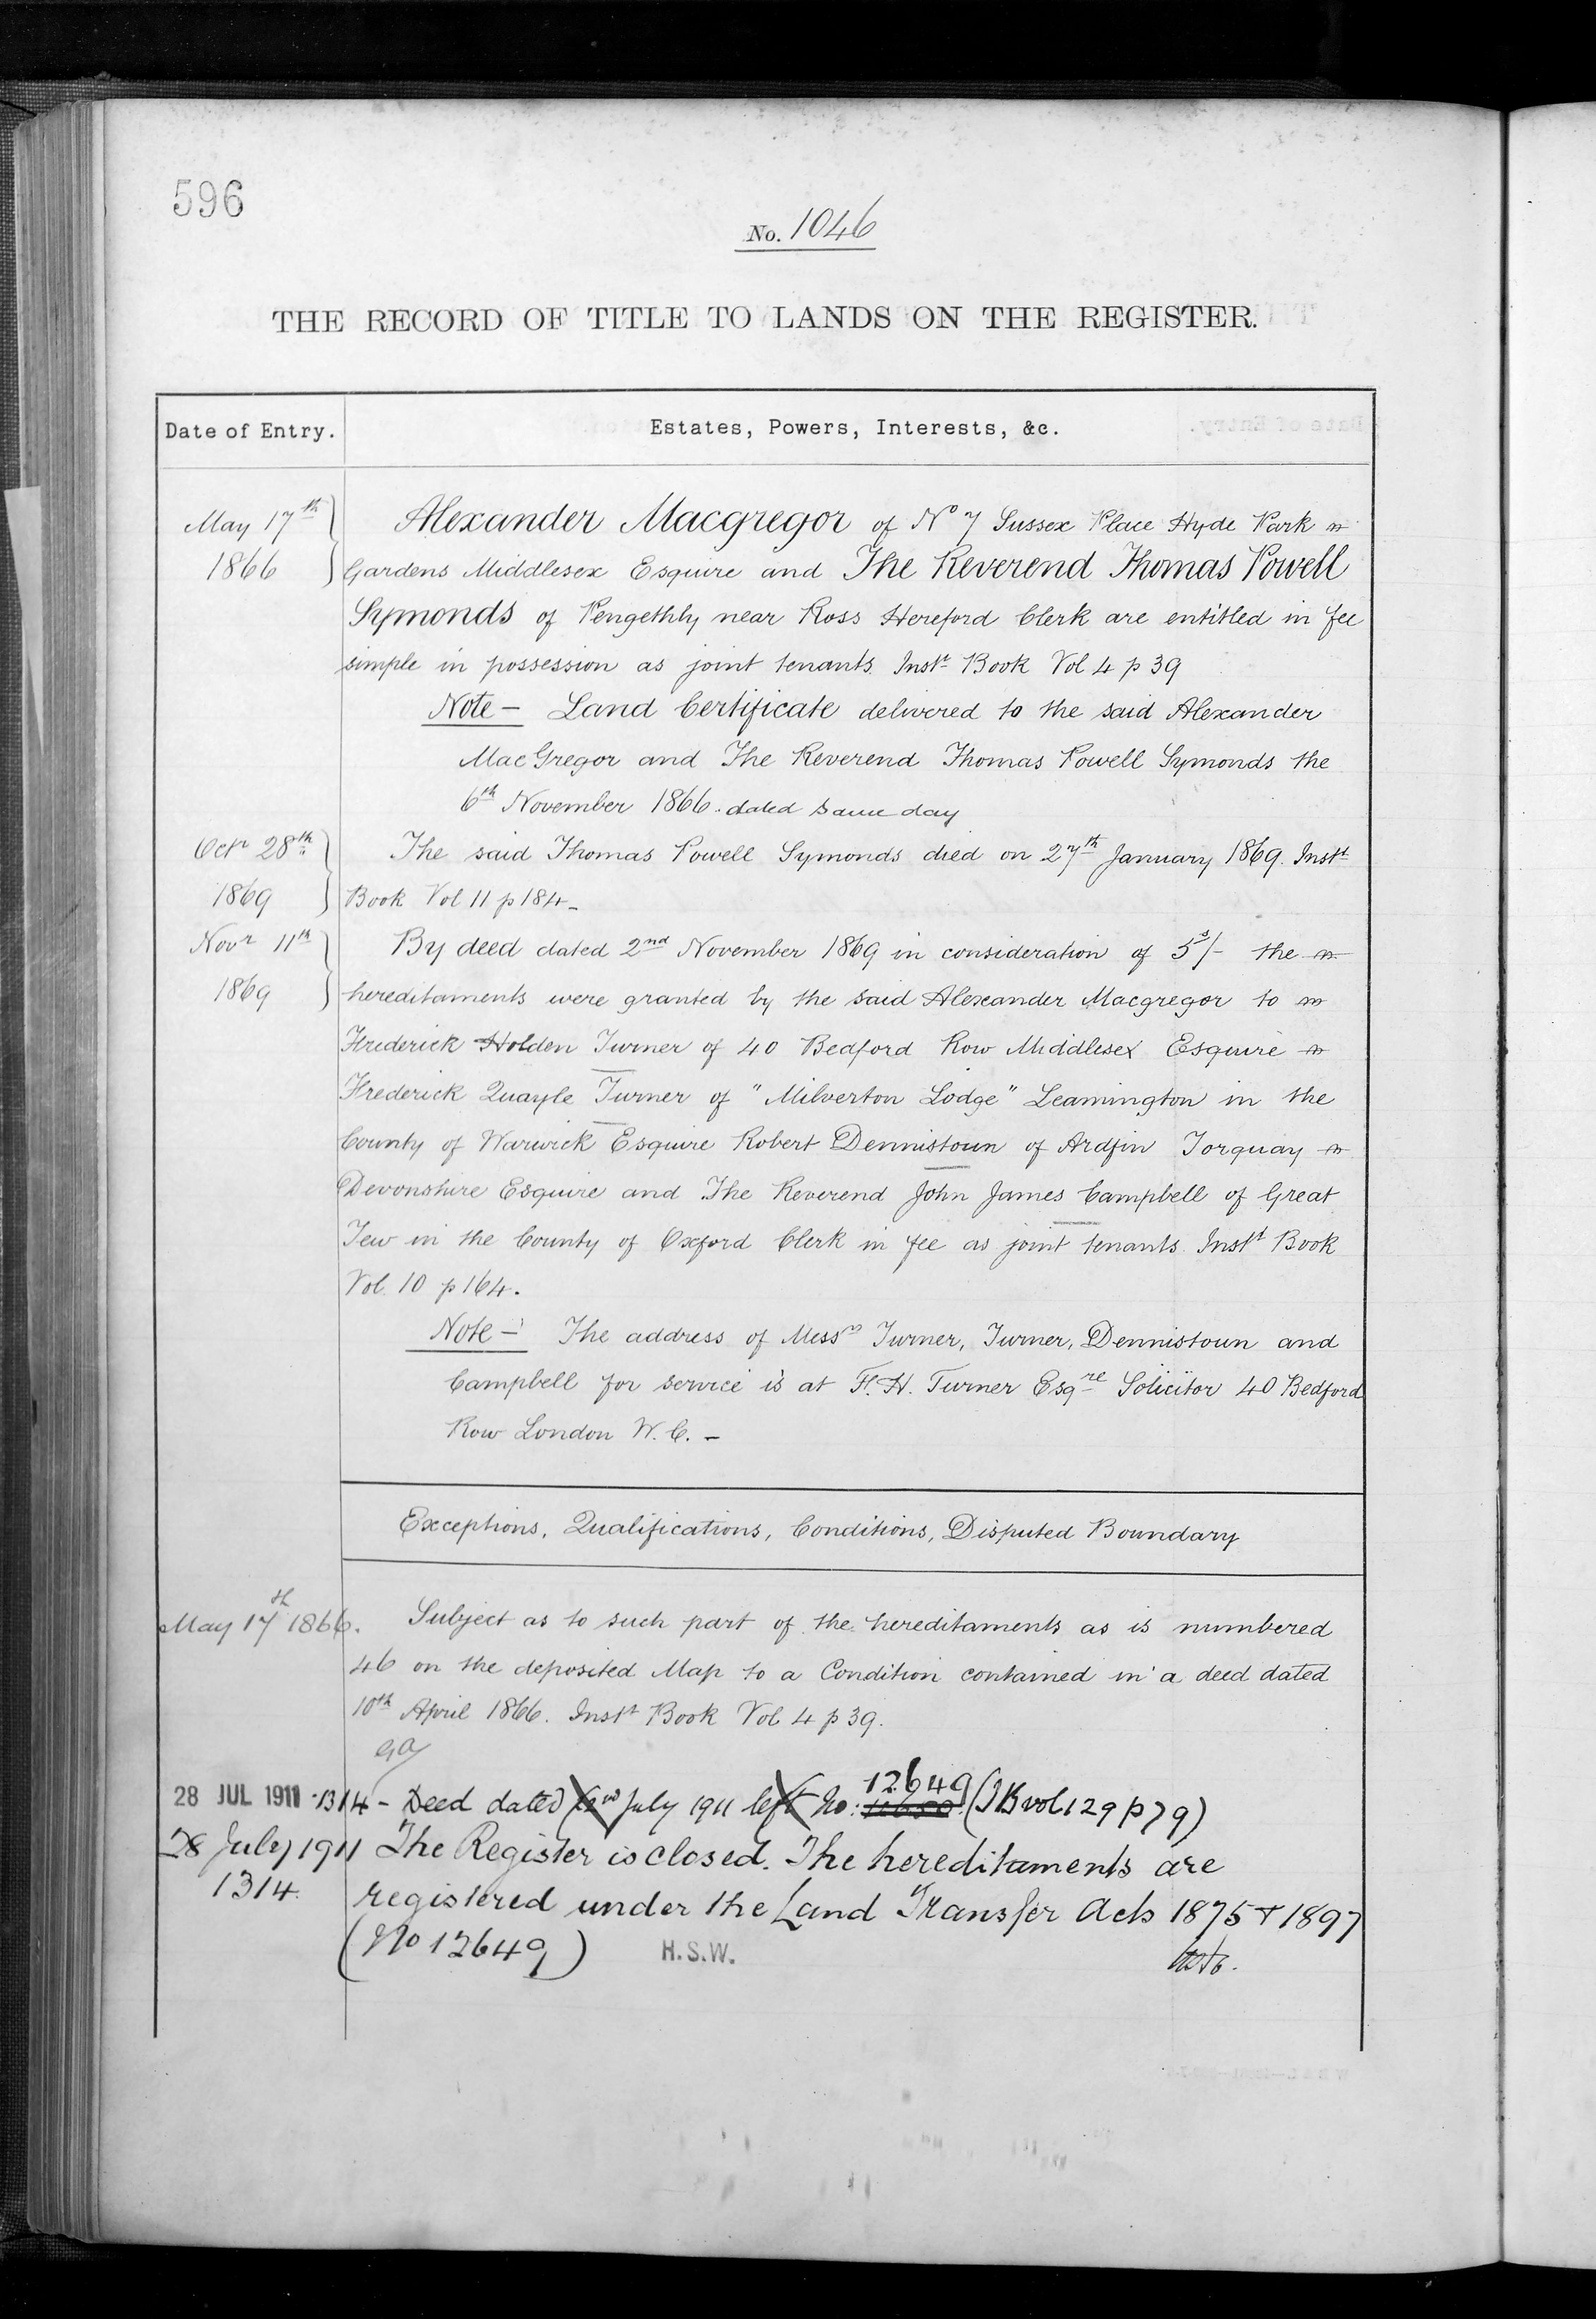 596
No. 1046
THE RECORD OF TITLE TO LANDS ON THE REGISTER.
Date of Entry.
Estates, Powers, Interests, &c.
May 17th 1866
Alexander Macgregor of No 7 Sussex Place Hyde Park
Gardens Middlesex Esquire and The Reverend Thomas Powell
Symonds of Pengethly near Ross Hereford Clerk are entitled in fee
simple in possession as joint tenants. Instt Book Vol 4 p 39
Note - Land Certificate delivered to the said Alexander
MacGregor and The Reverend Thomas Powell Symonds the
6th November 1866. dated same day
Octr 28th 1869
The said Thomas Powell Symonds died on 27th January 1869. Instt
Book Vol 11 p 184-
Novr 11th 1869
By deed dated 2nd November 1869 in consideration of 5s/- the
hereditaments were granted by the said Alexander Macgregor to
Frederick Holden Turner of 40 Bedford Row Middlesex Esquire
Frederick Quayle Turner of "Milverton Lodge" Leamington in the
County of Warwick Esquire Robert Dennistoun of Ardfin Torquay
Devonshire Esquire and The Reverend John James Campbell of Great
Tew in the County of Oxford Clerk in fee as joint tenants Instt Book
Vol. 10 p 164.
Note - The address of Messrs Turner, Turner, Dennistoun and
Campbell for service is at F. H. Turner Esqre Solicitor 40 Bedford
Row London W. C. -
Exceptions, Qualifications, Conditions, Disputed Boundary
May 17th 1866.
Subject as to such part of the hereditaments as is numbered
46 on the deposited Map to a Condition contained in a deed dated
10th April 1866. Instt Book Vol 4 p 39.
28 JUL 1911 1314 - Deed dated July 1911 left No: 12649 (IB vol 129 p 79)
28 July 1911 The Register is closed. The hereditaments are
1314. registered under the Land Transfer Acts 1875 & 1897
(No 12649) H.S.W.